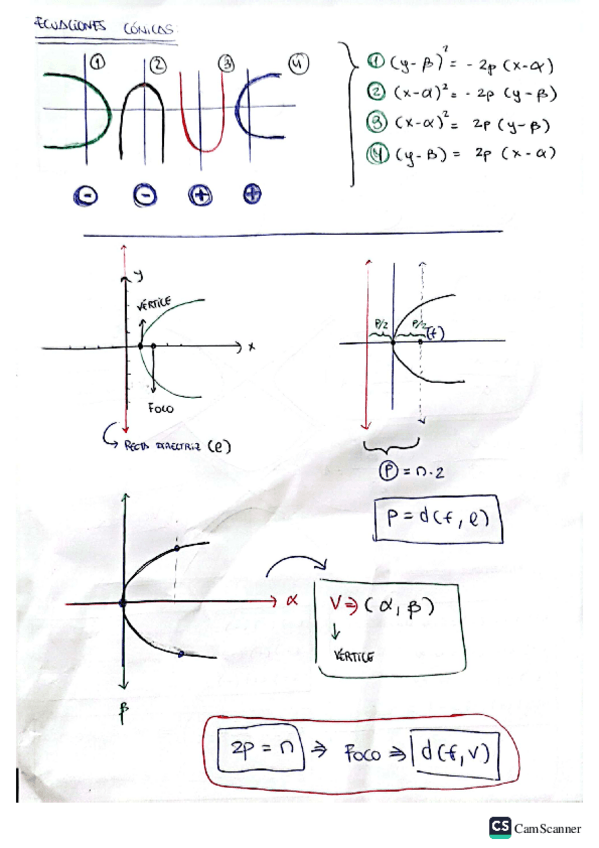 ECUACIONES CÓNICAS
① ② ③ ④
① (y-β)² = -2p (x-α)
② (x-α)² = -2p (y-β)
③ (x-α)² = 2p (y-β)
④ (y-β) = 2p (x-α)
⊖ ⊖ ⊕ ⊕
y
VÉRTICE
x
FOCO
RECTA DIRECTRIZ (e)
P/2 P/2 (f)
Ⓟ = n·2
P = d(f, e)
α
β
V ⇒ (α, β)
↓
VÉRTICE
2p = n ⇒ FOCO ⇒ d(f, v)
CS CamScanner